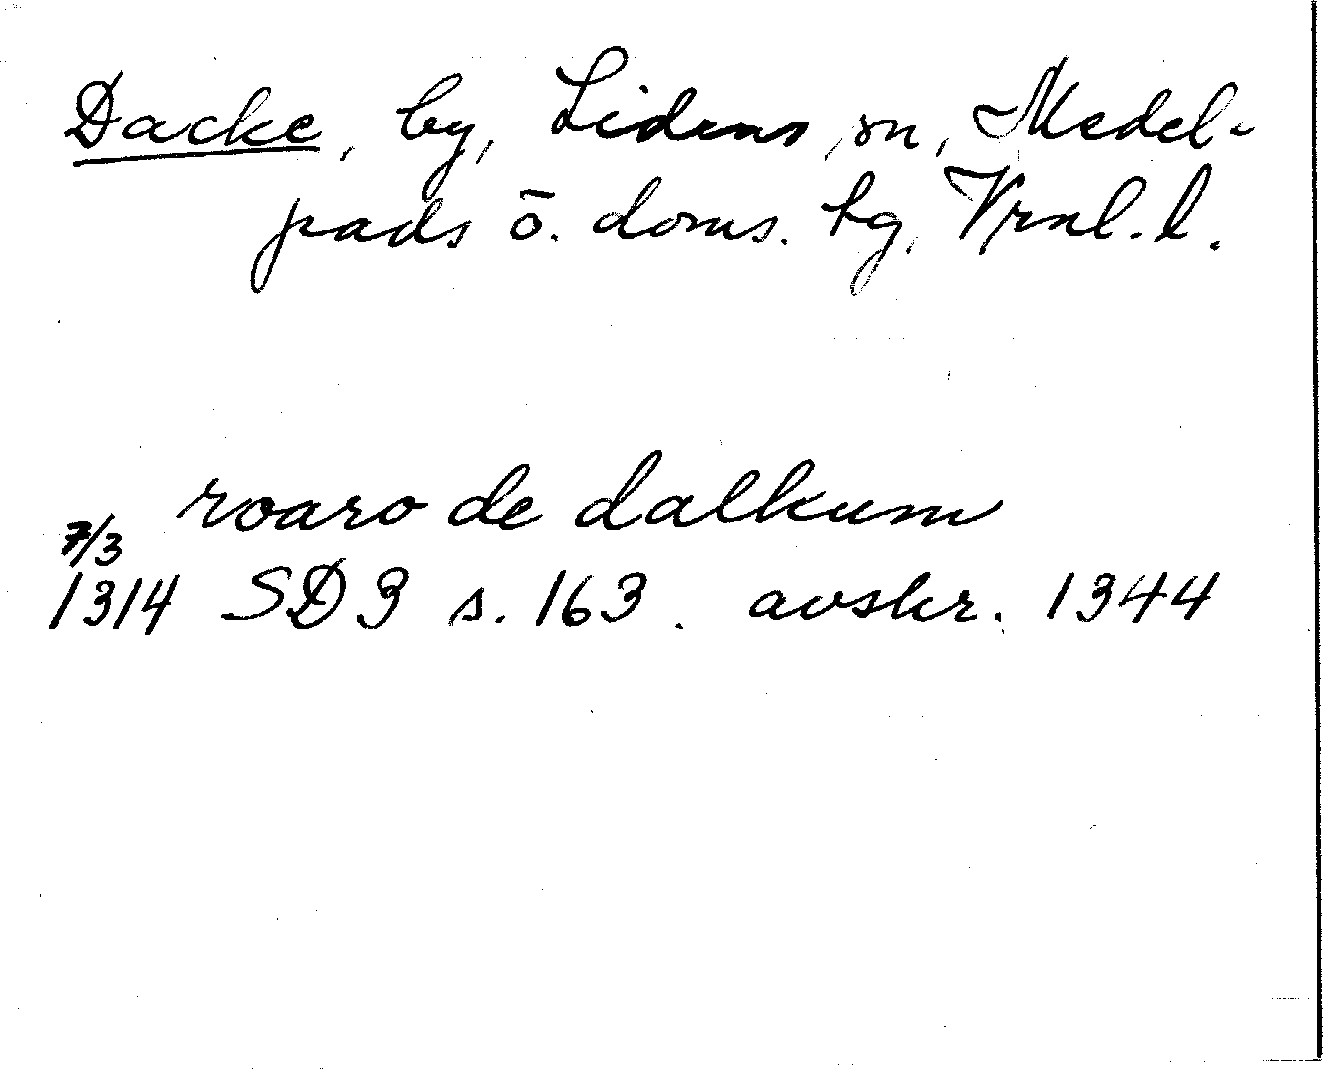 Dacke, by, Lidens sn, Medel-
pads ö. doms. tg, Vrnl. l.
roaro de dalkum
7/3
1314 SD 3 s. 163. avskr. 1344